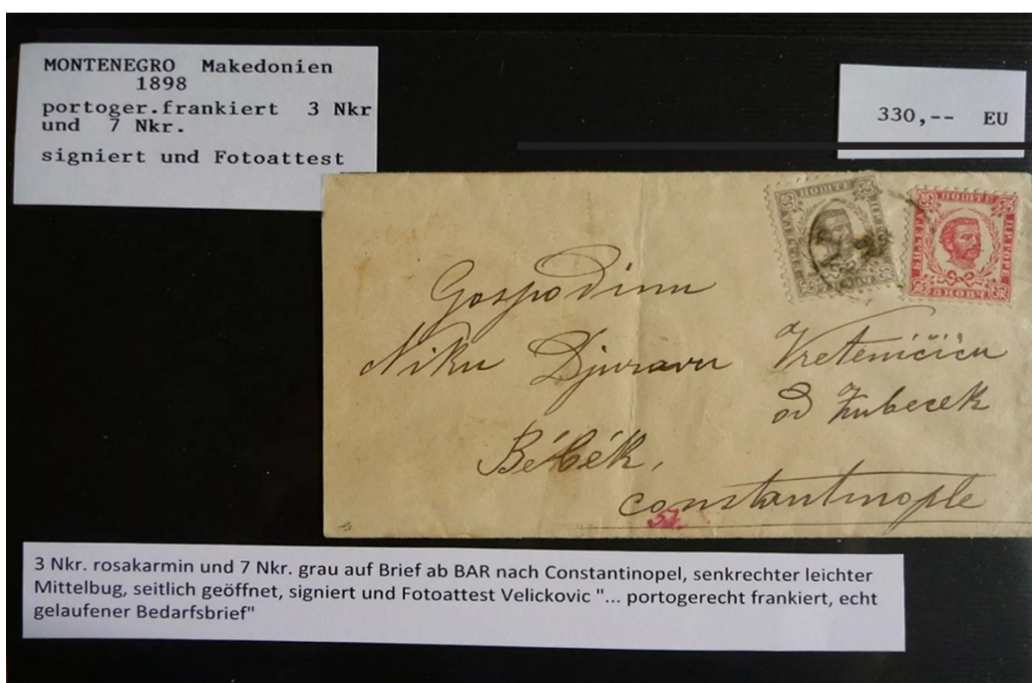 MONTENEGRO Makedonien
1898
portoger.frankiert 3 Nkr
und 7 Nkr.
signiert und Fotoattest
330,-- EU
Gospodinu
Niku Djuravu
od
Bébék,
constantinople
3 Nkr. rosakarmin und 7 Nkr. grau auf Brief ab BAR nach Constantinopel, senkrechter leichter
Mittelbug, seitlich geöffnet, signiert und Fotoattest Velickovic "... portogerecht frankiert, echt
gelaufener Bedarfsbrief"